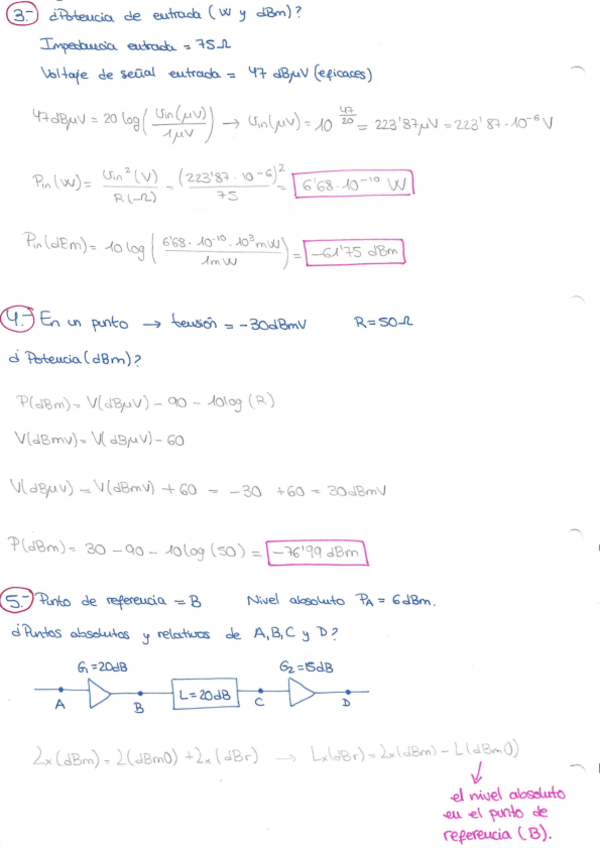 3.- ¿Potencia de entrada (W y dBm)?
Impedancia entrada = 75Ω
Voltaje de señal entrada = 47 dBμV (eficaces)
47dBμV = 20 log(Vin(μV)/1μV) → Vin(μV) = 10^(47/20) = 223'87μV = 223'87·10^-6 V
Pin(W) = Vin²(V)/R(Ω) = (223'87·10^-6)²/75 = 6'68·10^-10 W
Pin(dBm) = 10 log(6'68·10^-10·10³mW/1mW) = -61'75 dBm
4.- En un punto → tensión = -30dBmV R = 50Ω
¿Potencia (dBm)?
P(dBm) = V(dBμV) - 90 - 10log(R)
V(dBmV) = V(dBμV) - 60
V(dBμV) = V(dBmV) + 60 = -30 +60 = 30dBmV
P(dBm) = 30 - 90 - 10log(50) = -76'99 dBm
5.- Punto de referencia = B Nivel absoluto PA = 6dBm.
¿Puntos absolutos y relativos de A, B, C y D?
G1=20dB G2=15dB
L=20dB
A B C D
Lx(dBm) = L(dBm0) + Lx(dBr) → Lx(dBr) = Lx(dBm) - L(dBm0)
el nivel absoluto
en el punto de
referencia (B).